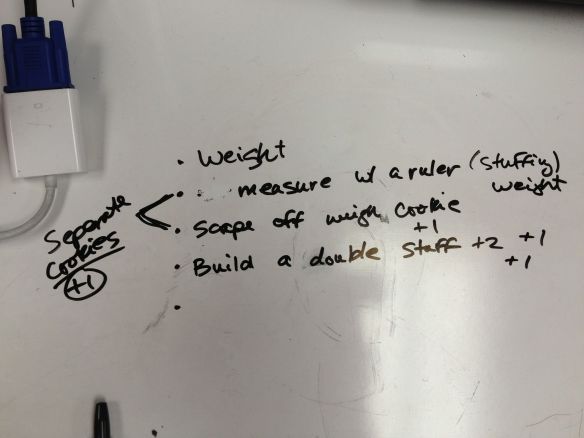 • Weight
• measure w/ a ruler (stuffing)
weight
• scrape off weigh cookie
+1
• Build a double stuff +2 +1
+1
•
Separate
cookies
+1